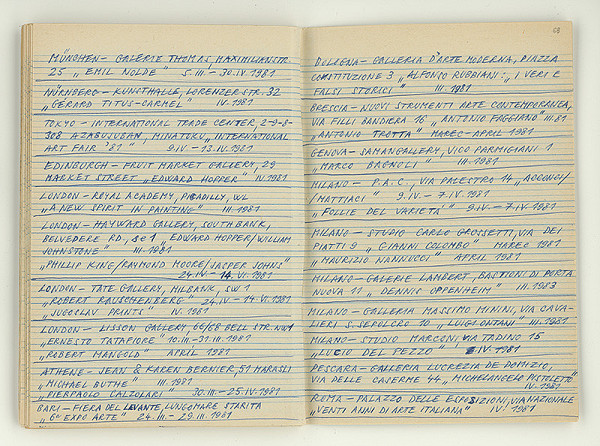 MÜNCHEN – GALERIE THOMAS, MAXIMILIANSTR.
25 „EMIL NOLDE" 5.III–30.IV 1981
NÜRNBERG – KUNSTHALLE, LORENZER STR. 32
„GÉRARD TITUS-CARMEL" IV.1981
TOKYO – INTERNATIONAL TRADE CENTER, 2-9-8-
308 AZABUJUBAN, MINATOKU „INTERNATIONAL
ART FAIR '81" 9.IV – 13.IV.1981
EDINBURGH – FRUIT MARKET GALLERY, 29
MARKET STREET „EDWARD HOPPER" IV.1981
LONDON – ROYAL ACADEMY, PICADILLY, WL
„A NEW SPIRIT IN PAINTING" III.1981
LONDON – HAYWARD GALLERY, SOUTH BANK,
BELVEDERE RD, SE1 „EDWARD HOPPER/WILLIAM
JOHNSTONE" III.1981
„PHILLIP KING/RAYMOND MOORE/JASPER JOHNS"
24.IV – 14.VI.1981
LONDON – TATE GALLERY, MILBANK, SW1
„ROBERT RAUSCHENBERG" 24.IV – 14.VI.1981
„JUGOSLAV PRINTS" IV.1981
LONDON – LISSON GALLERY, 66/68 BELL STR. NW1
„ERNESTO TATAFIORE" 10.III–31.III.1981
„ROBERT MANGOLD" APRIL 1981
ATHENS – JEAN & KAREN BERNIER, 51 MARASLI
„MICHAEL BUTHE" III.1981
„PIERPAOLO CALZOLARI" 30.III – 25.IV.1981
BARI – FIERA DEL LEVANTE, LUNGOMARE STARITA
„6ª EXPO ARTE" 24.III – 29.III.1981
68
BOLOGNA – GALLERIA D'ARTE MODERNA, PIAZZA
COSTITUZIONE 3 „ALFONSO RUBBIANI: „I VERI E
FALSI STORICI" III.1981
BRESCIA – NUOVI STRUMENTI ARTE CONTEMPORANEA,
VIA F.LLI BANDIERA 16 „ANTONIO FAGGIANO" III.81
„ANTONIO TROTTA" MAREC-APRIL 1981
GENOVA – SAMANGALLERY, VICO PARMIGIANI 1
„MARCO BAGNOLI" III.1981
MILANO – P.A.C., VIA PALESTRO 14 „ACCONCI/
/MATTIACI" 9.IV. – 7.IV.1981
„FOLLIE DEL VARIETA'" 9.IV – 7.IV.1981
MILANO – STUDIO CARLO GROSSETTI, VIA DEI
PIATTI 9 „GIANNI COLOMBO" MAREC 1981
„MAURIZIO NANNUCCI" APRIL 1981
MILANO – GALERIE LAMBERT, BASTIONI DI PORTA
NUOVA 11 „DENNIS OPPENHEIM" III.1983
MILANO – GALLERIA MASSIMO MININI, VIA CAVA-
LIERI S. SEPOLCRO 10 „LUIGI ONTANI" III.1981
MILANO – STUDIO MARCONI, VIA TADINO 15
„LUCIO DEL PEZZO" IV.1981
PESCARA – GALLERIA LUCREZIA DE DOMIZIO,
VIA DELLE CASERME 44 „MICHELANGELO PISTOLETTO"
IV.1981
ROMA – PALAZZO DELLE ESPOSIZIONI, VIA NAZIONALE
„VENTI ANNI DI ARTE ITALIANA" IV.1981